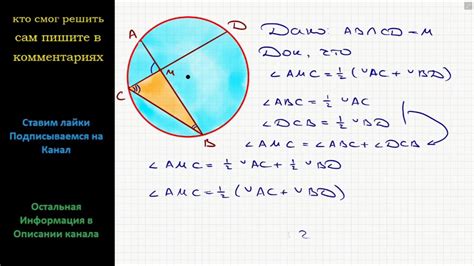 кто смог решить
сам пишите в
комментариях
Ставим лайки
Подписываемся на
Канал
Остальная
Информация в
Описании канала
A
D
M
C
B
Дано: AB∩CD=M
Док, что
∠AMC=½(◡AC+◡BD)
∠ABC=½◡AC
∠DCB=½◡BD
∠AMC=∠ABC+∠DCB
∠AMC=½◡AC+½◡BD
∠AMC=½(◡AC+◡BD)